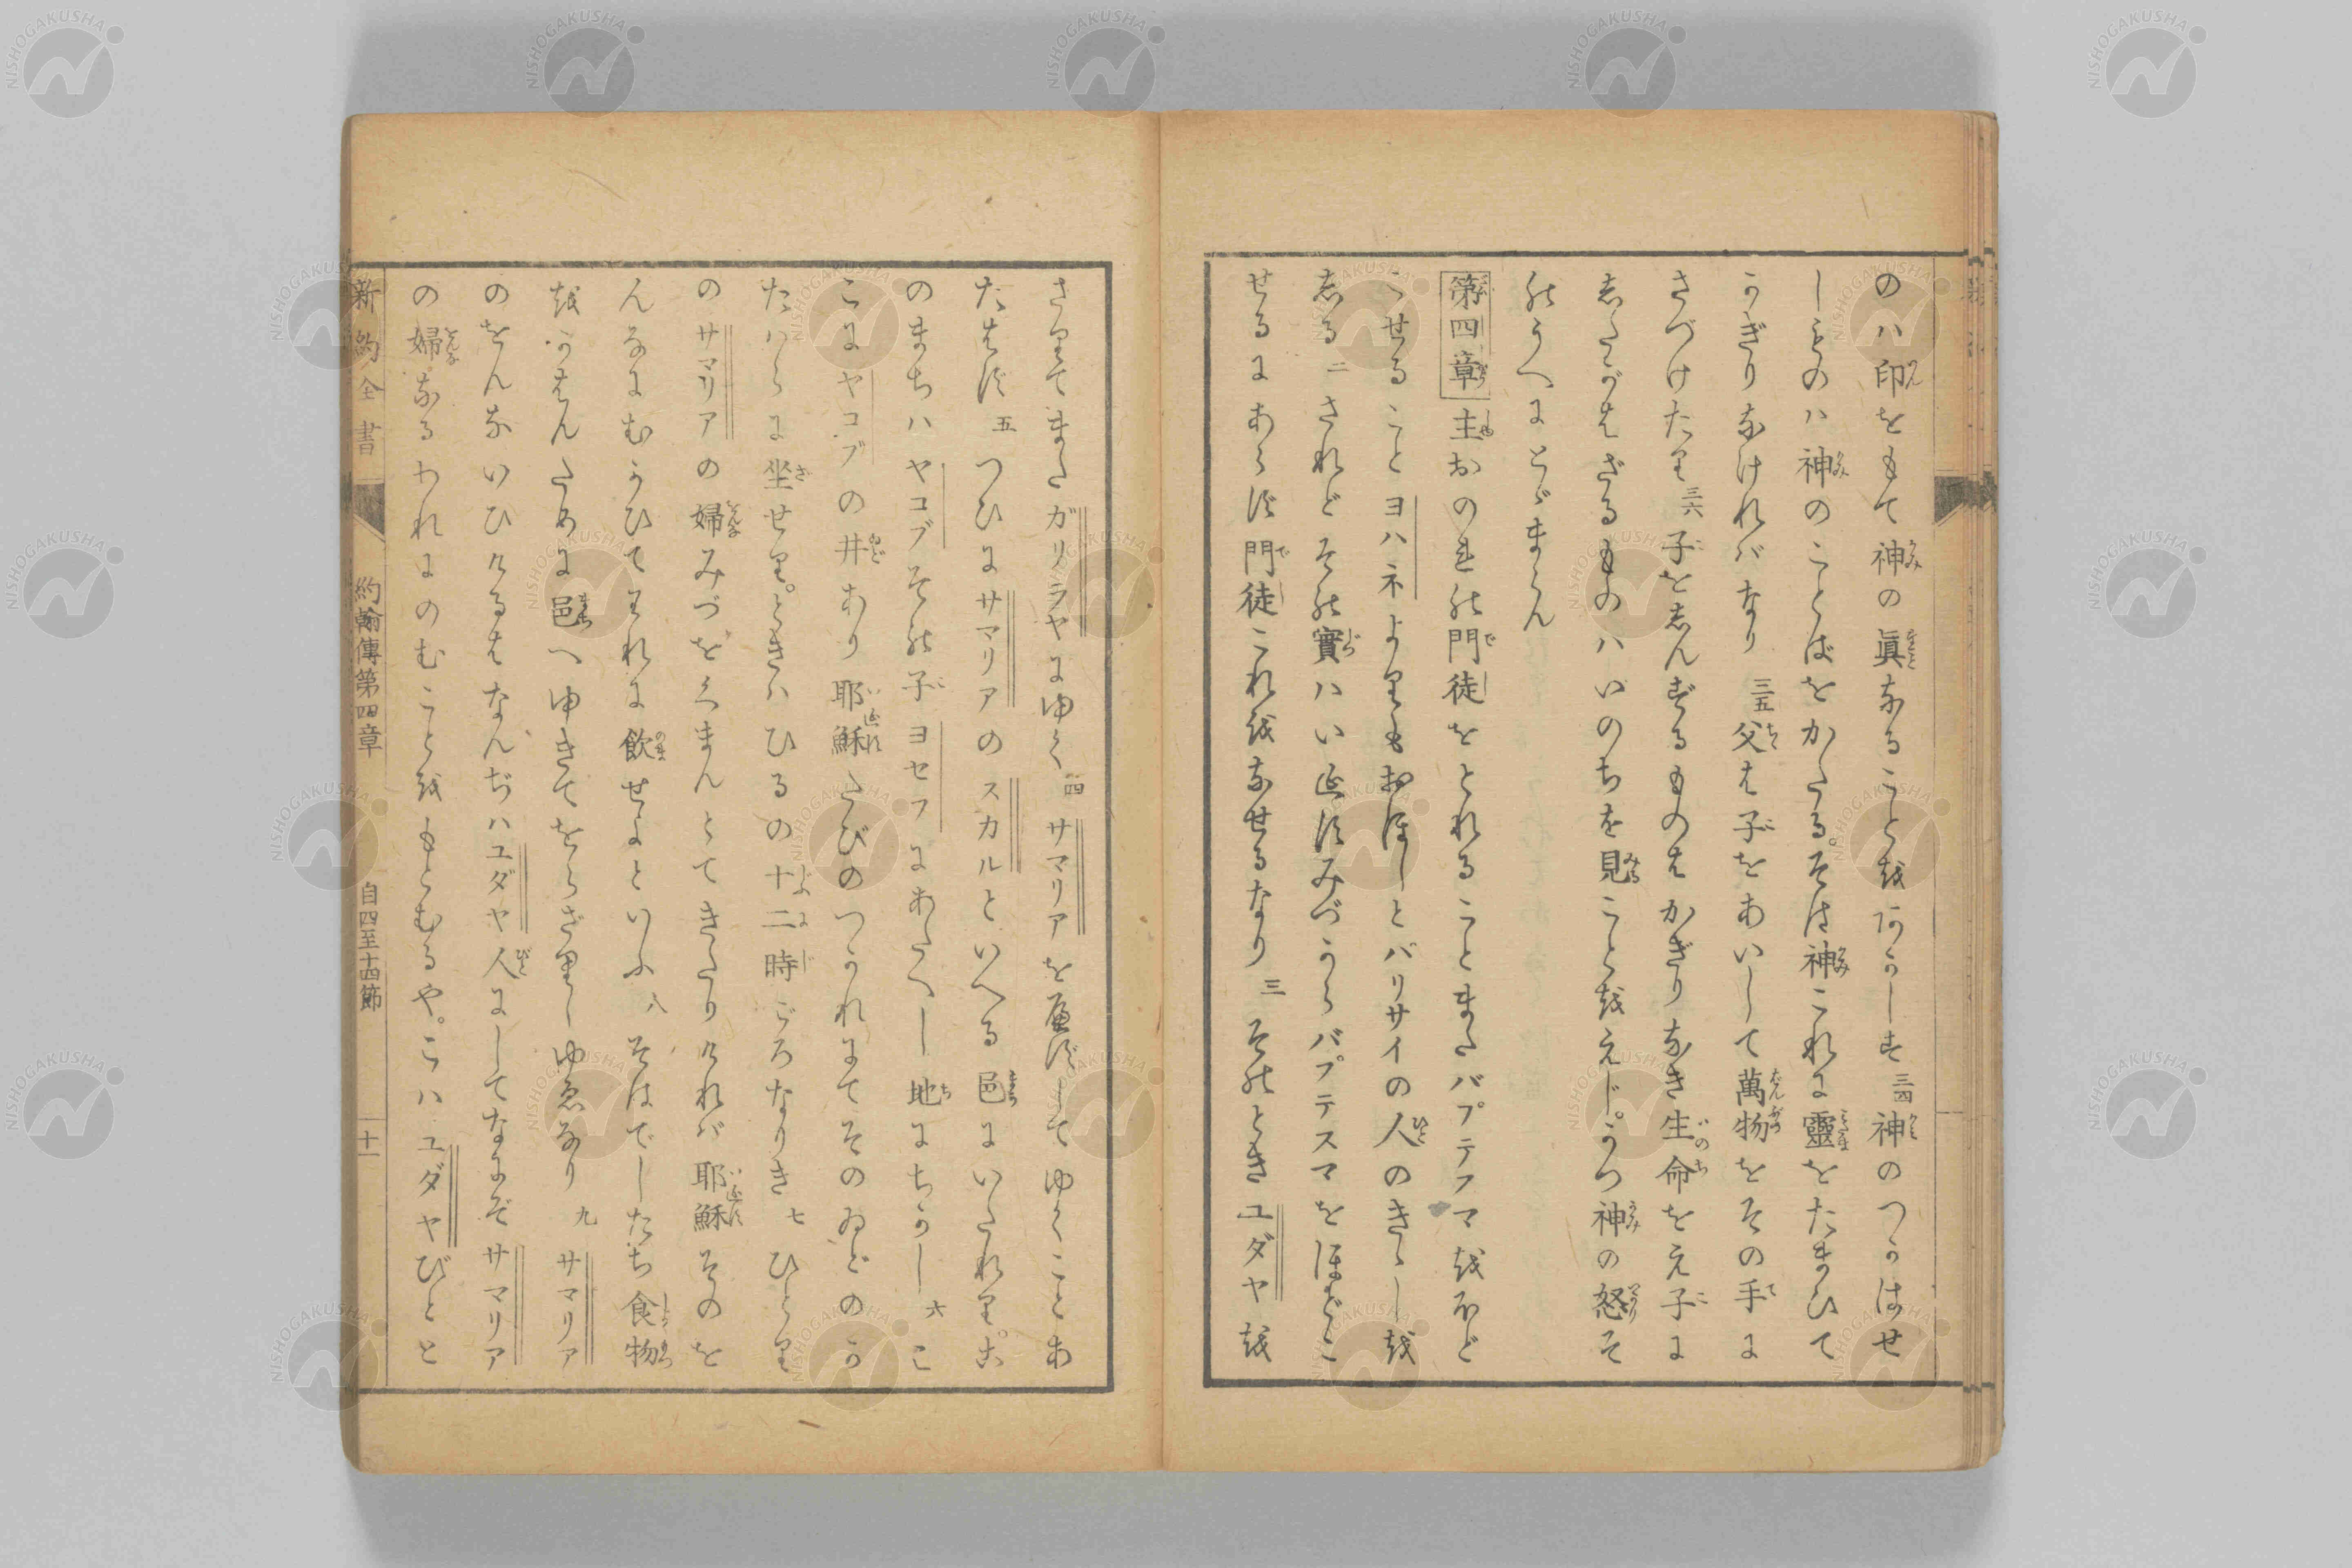 のハ印をもて神の眞なることをあかしす三四神のつかはせ
しものハ神のことばをかたる。そは神これに靈をたまひて
かぎりなけれバなり三五父は子をあいして萬物をその手に
さづけたり三六子をしんずるものはかぎりなき生命をえ子に
したがはざるものハいのちを見ことをえじ。かつ神の怒そ
のうへにとゞまらん
第四章主おのれの門徒をとれることまたバプテフマをほど
こせることヨハネよりもおほしとバリサイの人のきゝしを
しる二されどその實ハいゑすみづからバプテスマをほどこ
せるにあらず門徒これをなせるなり三そのときユダヤを
さりてまたガリラヤにゆく四サマリアを庭ずしてゆくことあ
たはず五つひにサマリアのスカルといへる邑にいたれり。こ
のまちハヤコブその子ヨセフにあたへし地にちかし六こ
こにヤコブの井あり耶穌たびのつかれにてそのゐどのか
たハらに坐せり。ときハひるの十二時ごろなりき七ひとり
のサマリアの婦みづをくまんとてきたりけれバ耶穌そのを
んなにむかひてわれに飲せよといふ八そはでしたち食物
をかはんために邑へゆきてをらざりしゆゑなり九サマリア
のをんないひけるはなんぢハユダヤ人にしてなにぞサマリア
の婦なるわれにのむことをもとむるや。こハユダヤびとと
新約全書 約翰傳第四章 自四至十四節 十一